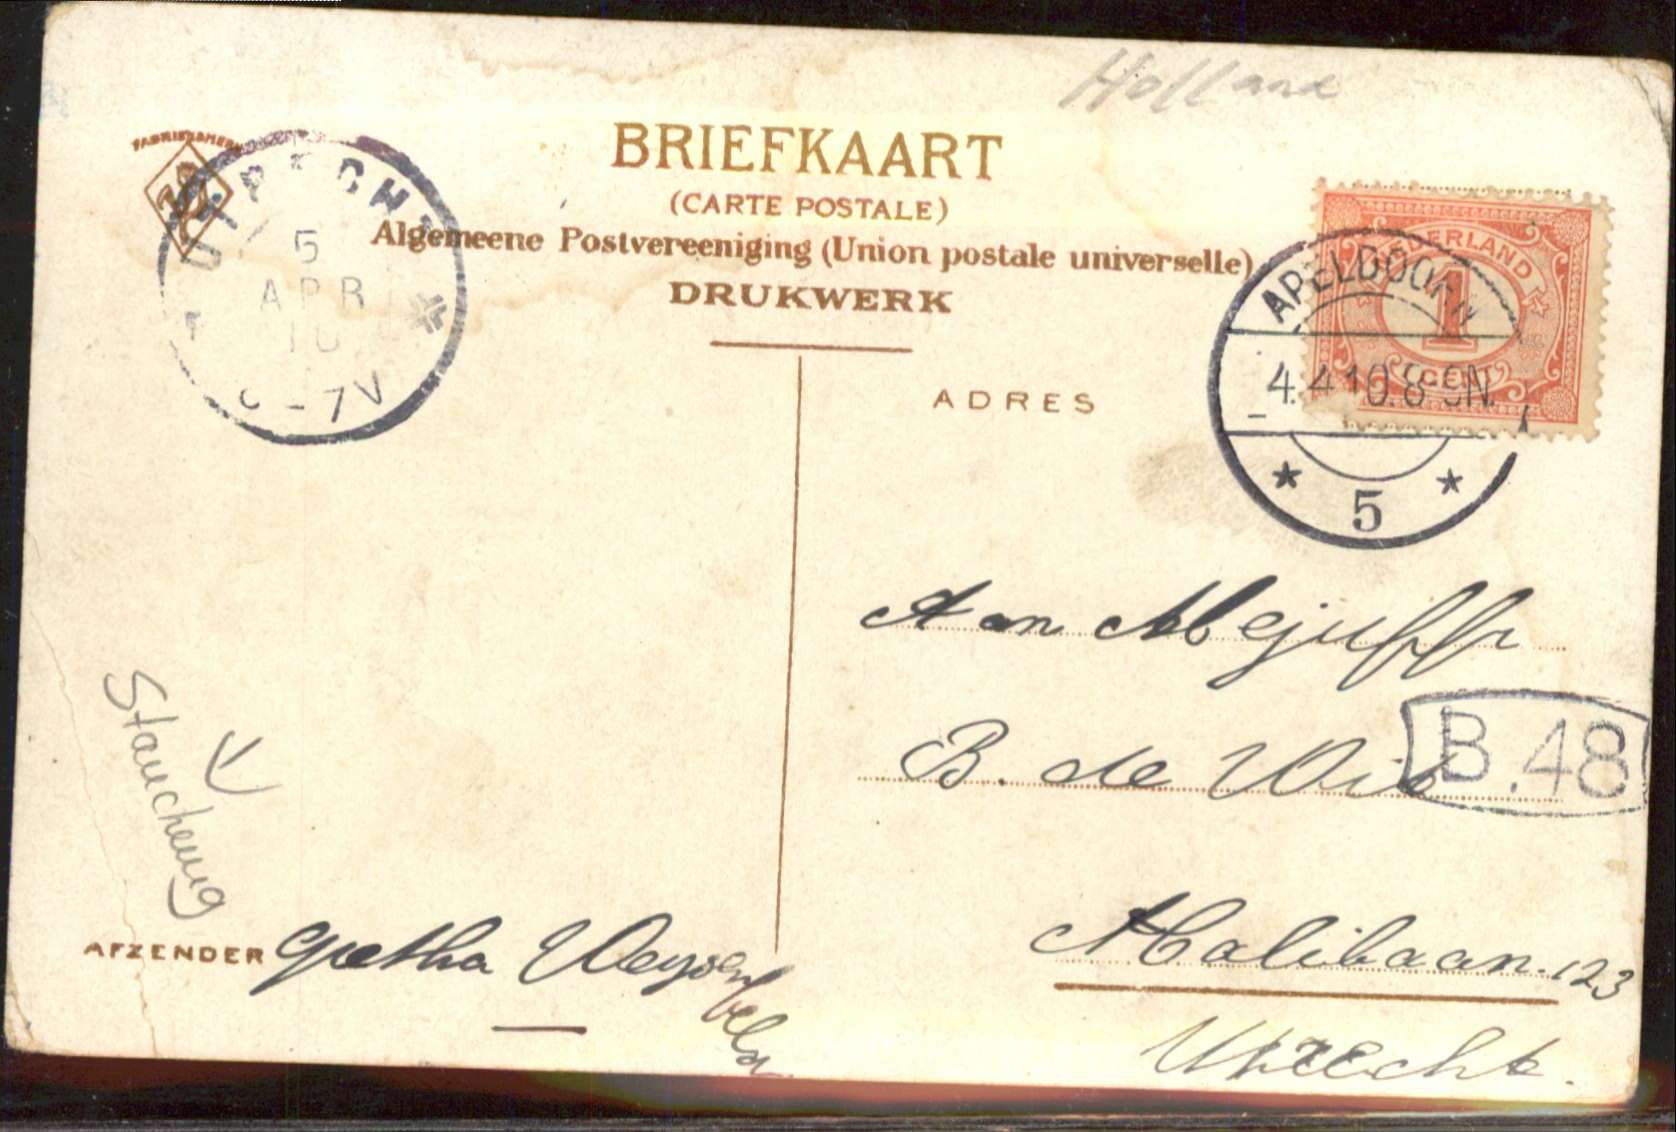 Holland
FABRIEKSMERK
BRIEFKAART
(CARTE POSTALE)
Algemeene Postvereeniging (Union postale universelle)
DRUKWERK
UTRECHT
5
APR
10
6-7V
NEDERLAND
1
CENT
APELDOORN
4.4.10.8-9N.
5
ADRES
Aan Mejuffr
B. de Wit
B.48
Malibaan. 123
Utrecht.
Stauchung
AFZENDER Gretha